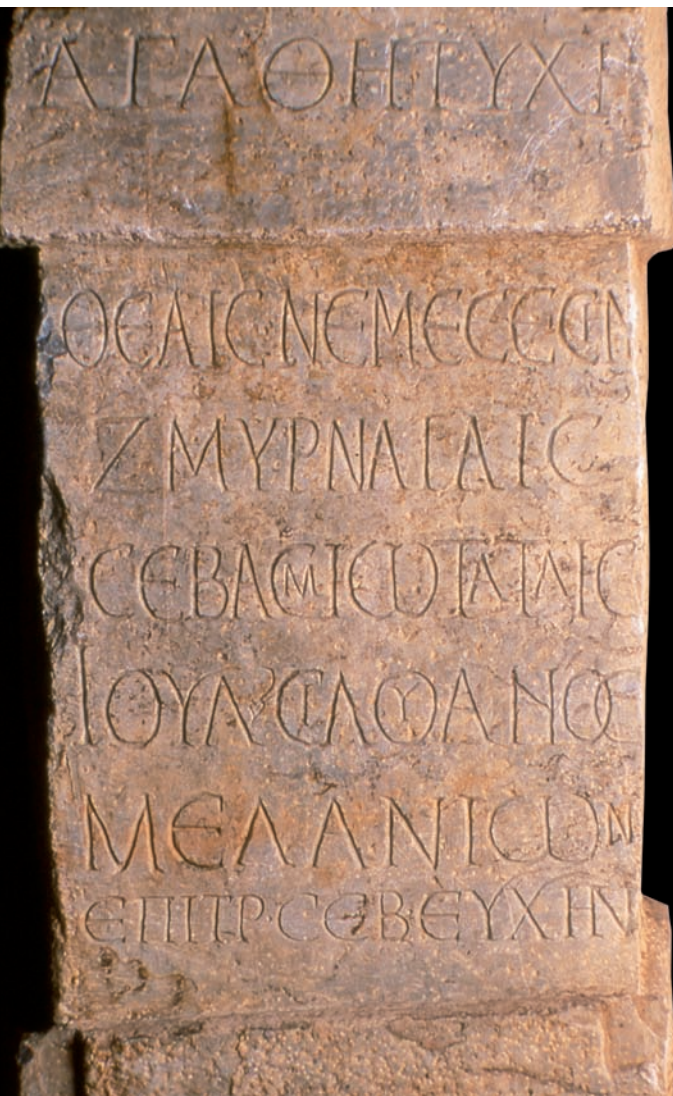 ΑΓΑΘΗΤΥΧΗ
ΘΕΑΙϹΝΕΜΕϹΕϹΙΝ
ΖΜΥΡΝΑΙΑΙϹ
ϹΕΒΑϹΜΙΩΤΑΤΑΙϹ
ΙΟΥΛϹΙΛΟΥΑΝΟϹ
ΜΕΛΑΝΙΩΝ
ΕΠΙΤΡ·ϹΕΒΕΥΧΗΝ